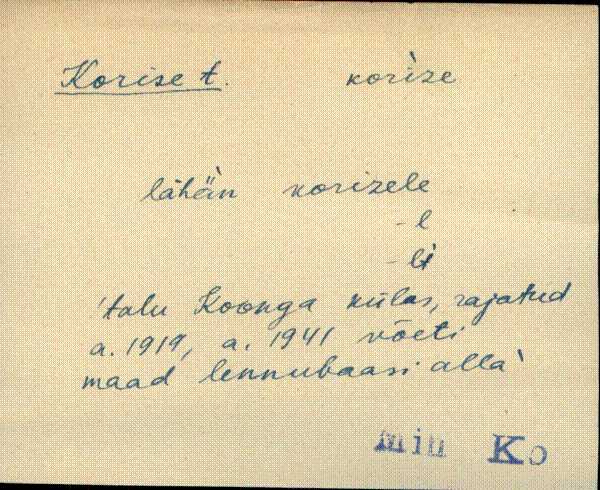 Korise t. koriʾze
lähän korizele
- l
- lt
'talu Koonga külas, rajatud
a. 1919, a. 1941 võeti
maad lennubaasi alla'
Mih Ko